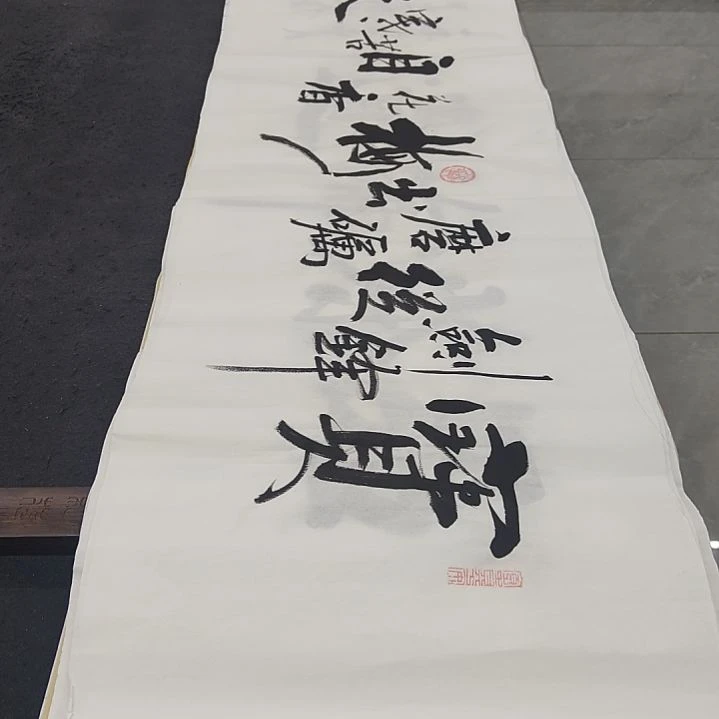 寶劍鋒從磨礪出
梅花香自苦寒